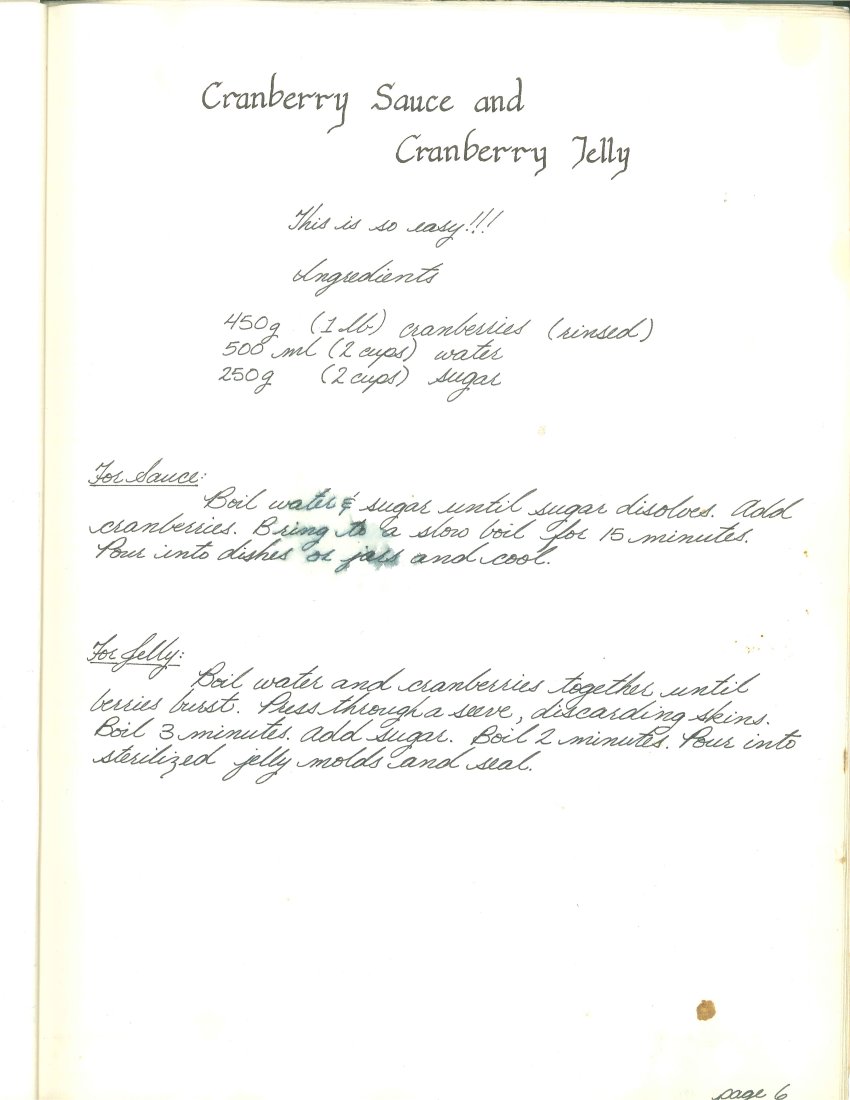 Cranberry Sauce and
Cranberry Jelly
This is so easy!!!
Ingredients
450g (1 lb) cranberries (rinsed)
500 ml (2 cups) water
250g (2 cups) sugar
For Sauce:
Boil water & sugar until sugar disolves. Add
cranberries. Bring to a slow boil for 15 minutes.
Pour into dishes or jars and cool.
For Jelly:
Boil water and cranberries together until
berries burst. Press through a seeve, discarding skins.
Boil 3 minutes. Add sugar. Boil 2 minutes. Pour into
sterilized jelly molds and seal.
page 6